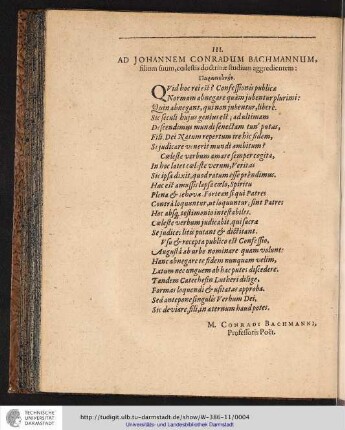 III.
AD JOHANNEM CONRADUM BACHMANNUM,
filium suum, cœlestis doctrinæ studium aggredientem:
QVid hoc rei est? Confessionis publicæ
Normam abnegare quàm jubentur plurimi:
Quin abnegant, qui non jubentur, liberè.
Sic seculi hujus genius est; ad ultimam
Descendimus mundi senectam tuò putas,
Fili. Dei Natum repertum ire hîc fidem,
Se judicare venerit mundi ambitum?
Cœleste verbum amare semper cogita,
In hoc latet cœleste verum, Veritas
Sic ipsa dixit, quod ratum esse prêndimus.
Hæc est amussis lapsa cœlo, Spiritu
Plena & jehova. Fortean si qui Patres
Contrà loquuntur, ut loquuntur, sint Patres
His absq́; testimonio intestabiles.
Cœleste verbum judicabit, qui sacra
Se judices litis putant & dictitant.
Usu & recepta publico est Confessio,
Augustâ ab urbe nominare quam volunt:
Hanc abnegare te fidem nunquam velim,
Latum nec unguem ab hac putes discedere.
Tandem Catechesin Lutheri dilige,
Formas loquendi & usitatas approba.
Sed antepone singulis Verbum Dei,
Sic deviare, fili, in æternum haud potes.
M. CONRADI BACHMANNI,
Professoris Poët.
TECHNISCHE
UNIVERSITÄT
DARMSTADT
http://tudigit.ulb.tu-darmstadt.de/show/W-386-11/0004
Universitäts- und Landesbibliothek Darmstadt